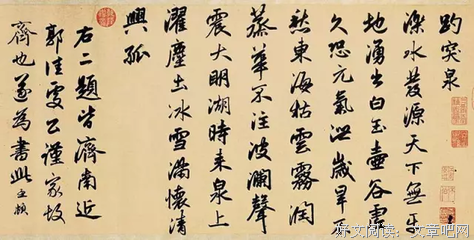 趵突泉
濼水發源天下無平
地湧出白玉壺谷虛
久恐元氣泄歲旱不
愁東海枯雲霧潤
蒸華不注波瀾聲
震大明湖時來泉上
濯塵土冰雪滿懷清
興孤
右二題皆濟南近
郭佳處公謹家故
齊也遂為書此孟頫
好文阅读:文章吧网